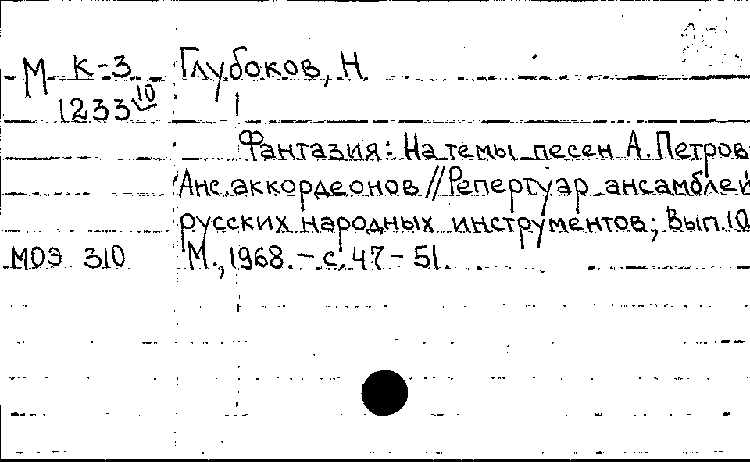 М К-3 Глубоков, Н
1233 10
Фантазия: На темы песен А. Петров
Анс. аккордеонов // Репертуар ансамблей
русских народных инструментов; Вып. 10
МОЭ 310 М., 1968. - с. 47 - 51.